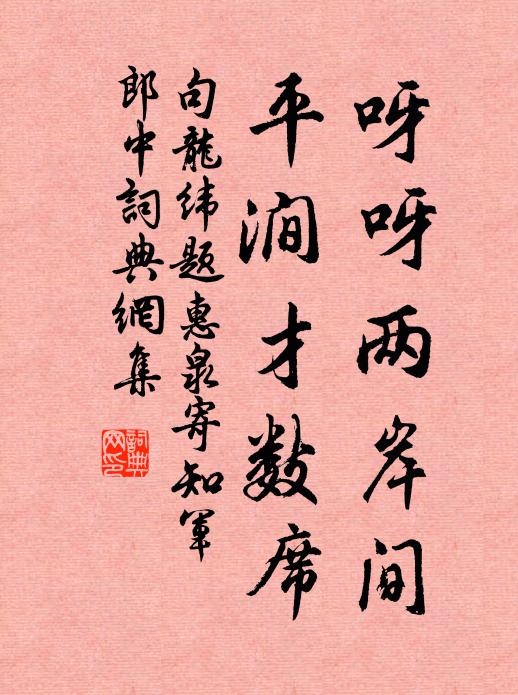 呀呀两岸间
平澗才数席
句龍緯题惠泉寄知軍
郎中詞典網集
詞典网印